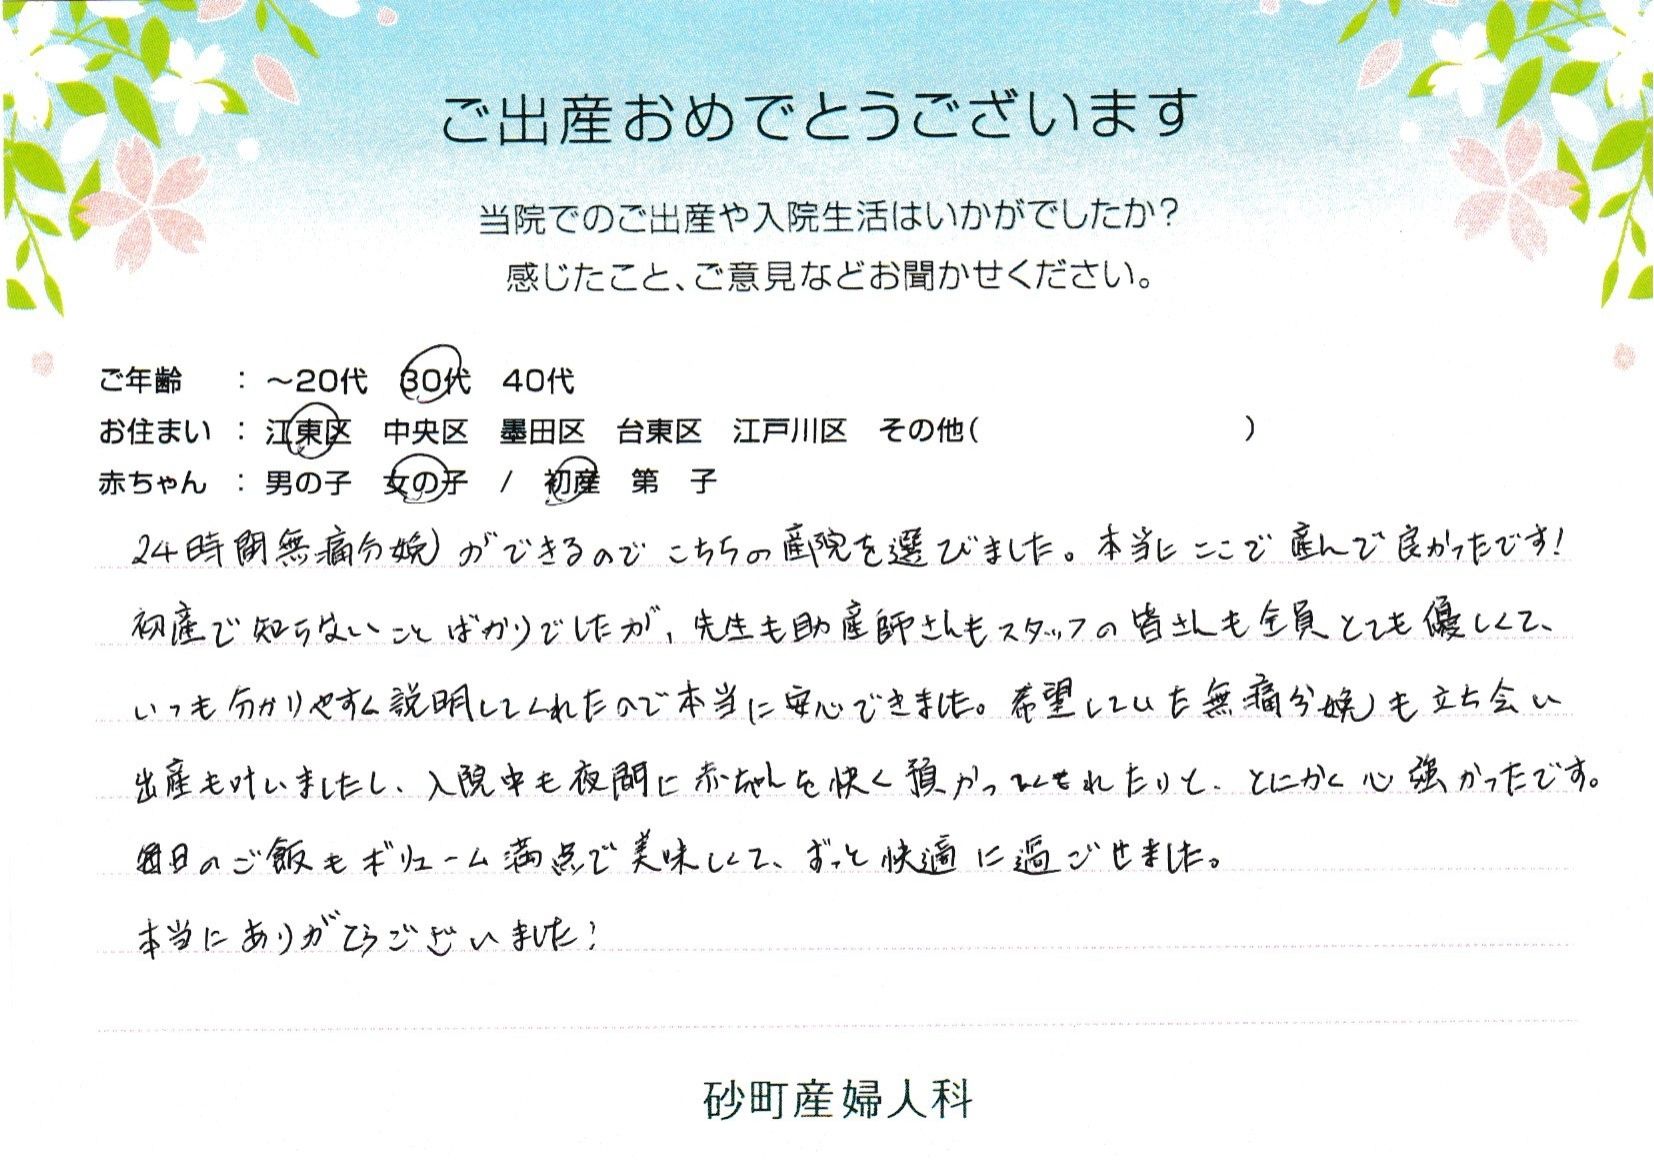 ご出産おめでとうございます
当院でのご出産や入院生活はいかがでしたか?
感じたこと、ご意見などお聞かせください。
ご年齢 : ～20代 30代 40代
お住まい : 江東区 中央区 墨田区 台東区 江戸川区 その他( )
赤ちゃん : 男の子 女の子 / 初産 第 子
24時間無痛分娩ができるのでこちらの産院を選びました。本当にここで産んで良かったです!
初産で知らないことばかりでしたが、先生も助産師さんもスタッフの皆さんも全員とても優しくて、
いつも分かりやすく説明してくれたので本当に安心できました。希望していた無痛分娩も立ち会い
出産も叶いましたし、入院中も夜間に赤ちゃんを快く預かってくれたりと、とにかく心強かったです。
毎日のご飯もボリューム満点で美味しくて、ずっと快適に過ごせました。
本当にありがとうございました!
砂町産婦人科